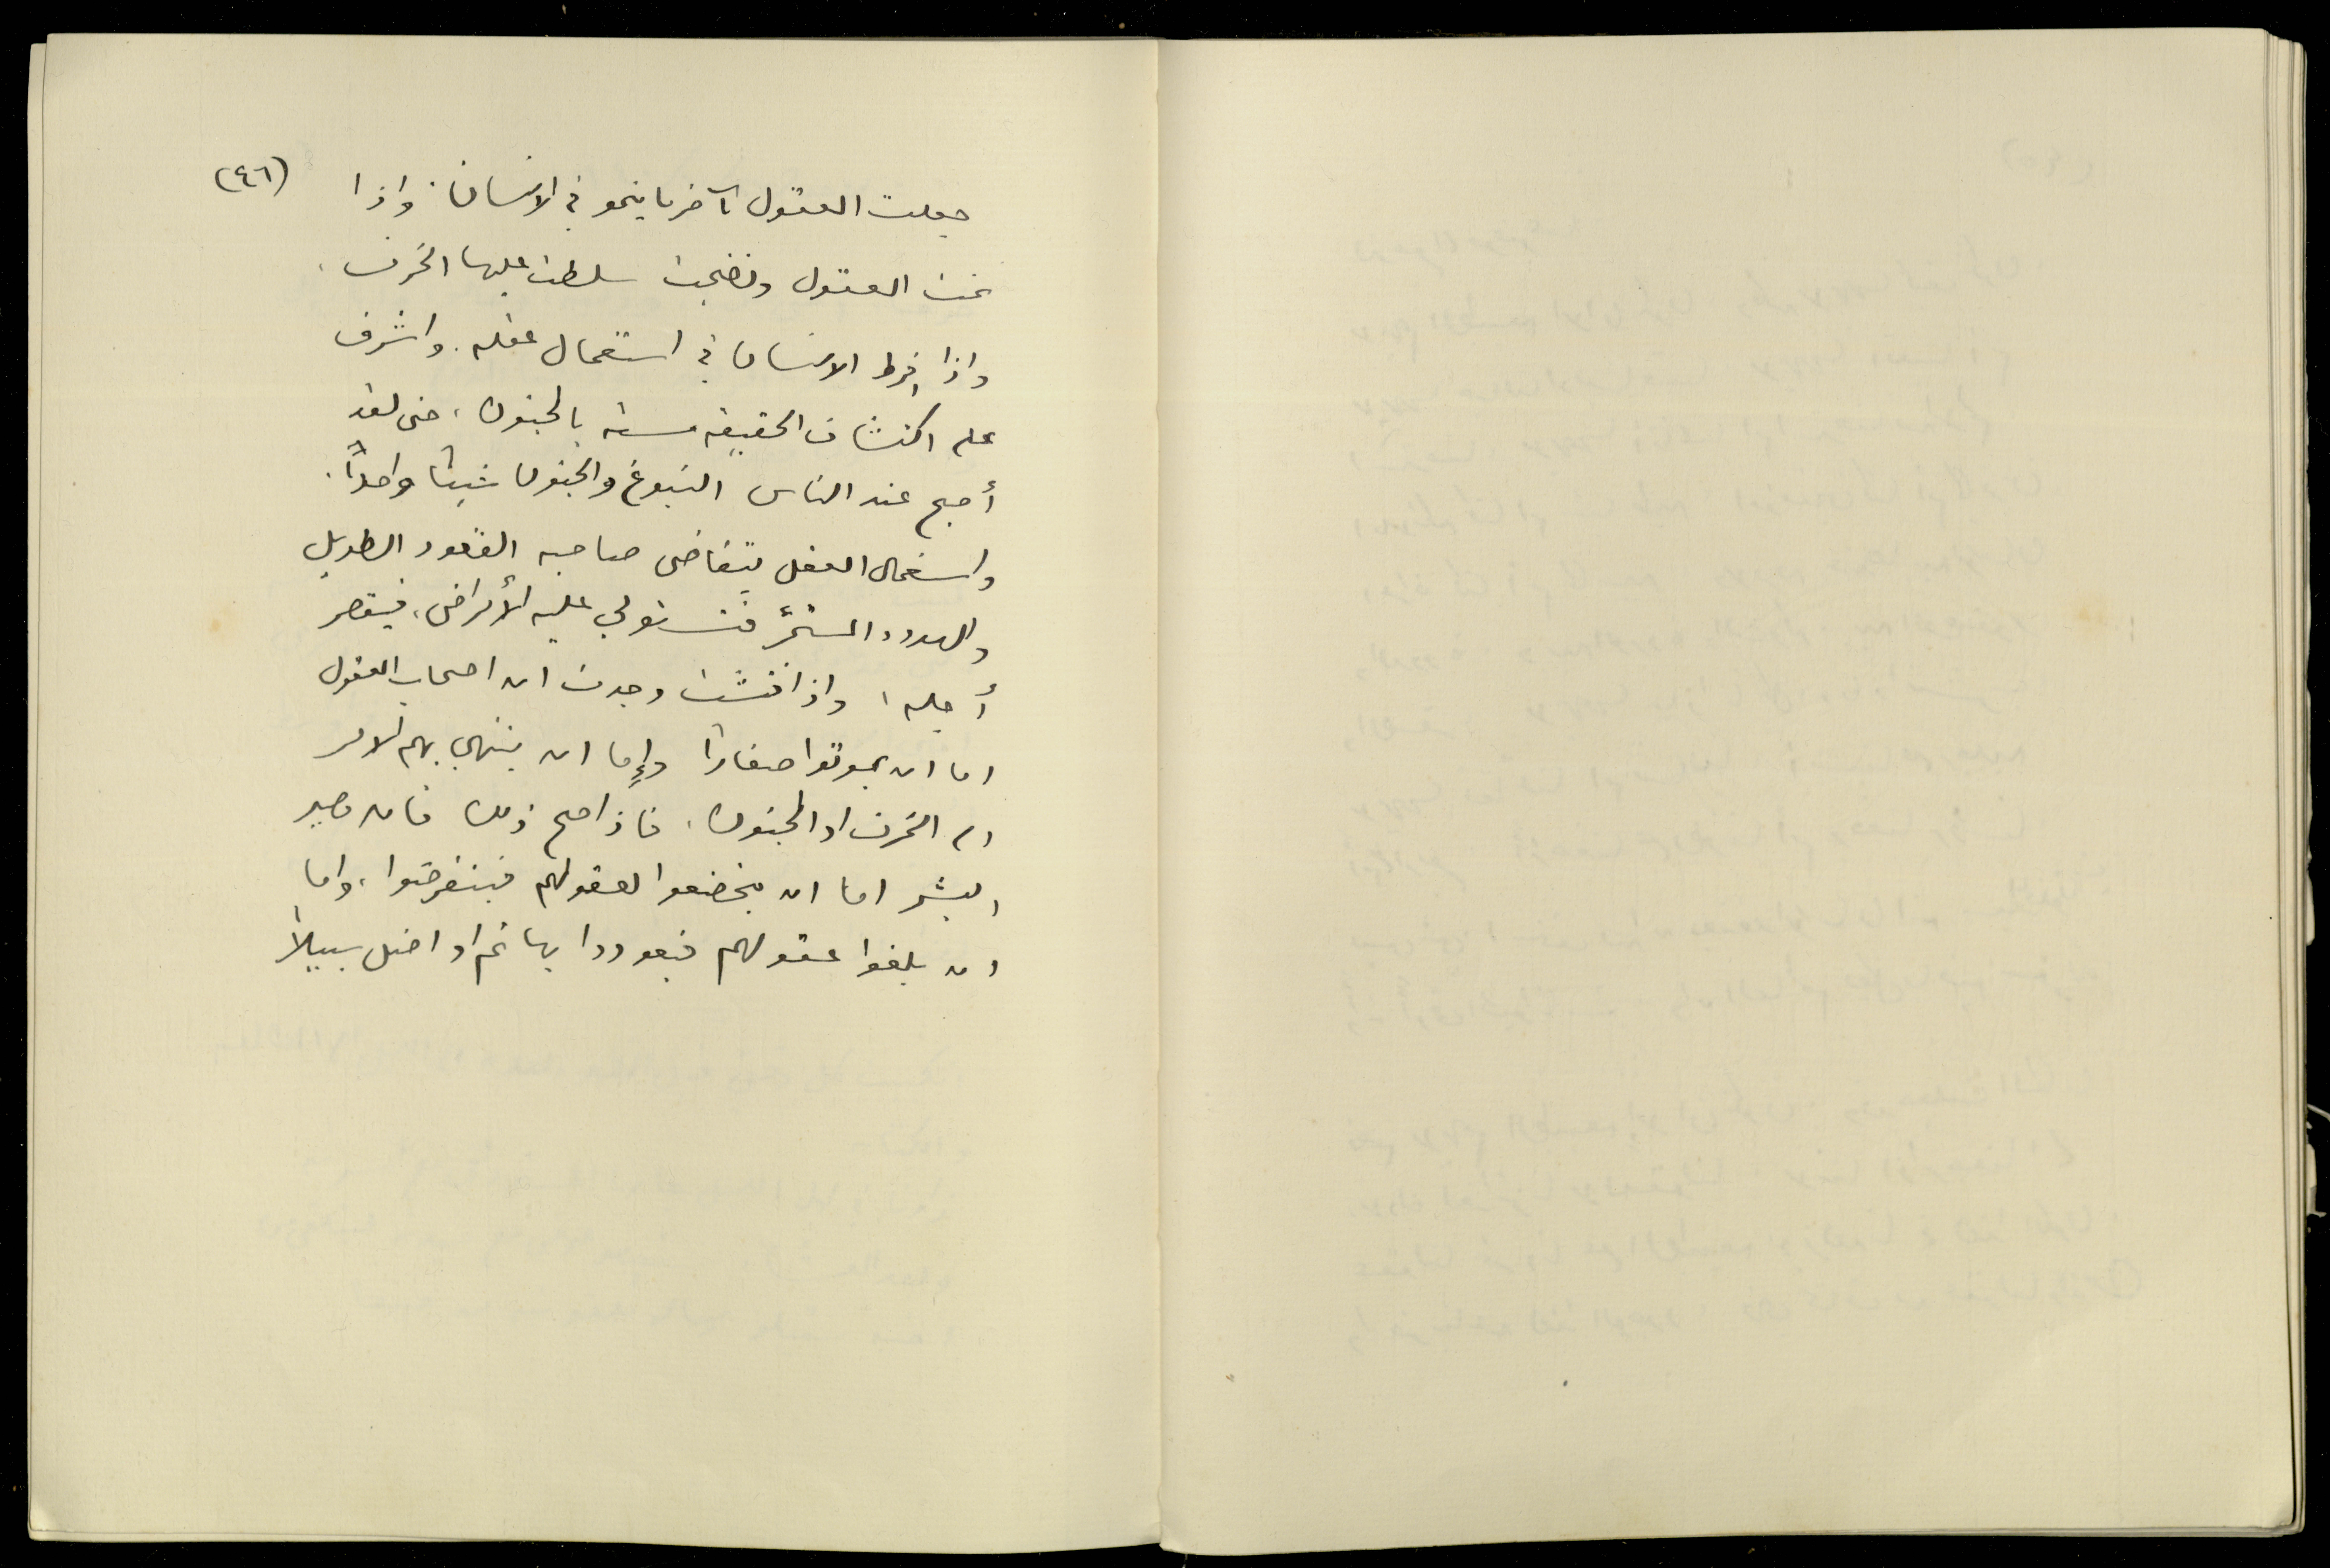 (٤٦)
جعلت العقول آخر ما ينمو في الانسان. واذا
نمت العقول ونضجت سلطت عليها الخرف.
واذا افرط الانسان في استعمال عقله. واشرف
على اكتشاف الحقيقة مسته بالجنون، حتى لقد
أصبح عند الناس النبوغ والجنون شيئا واحداً.
واستعمال العقل يتقاضى صاحبه القعود الطويل
والهدوء المستمرّ فتستولي عليه الأمراض، فيقصر
أجله، واذا فتشت وجدت ان اصحاب العقول
اما ان يموتوا صغارا وإما ان ينتهي بهم الامر
الى الخرف او الجنون. فاذا صح ذلك فان مصير
البشر اما ان يخضعوا لعقولهم فينقرضوا، واما
ان يلغوا عقولهم فيعودوا بهائم او اضل سبيلاً